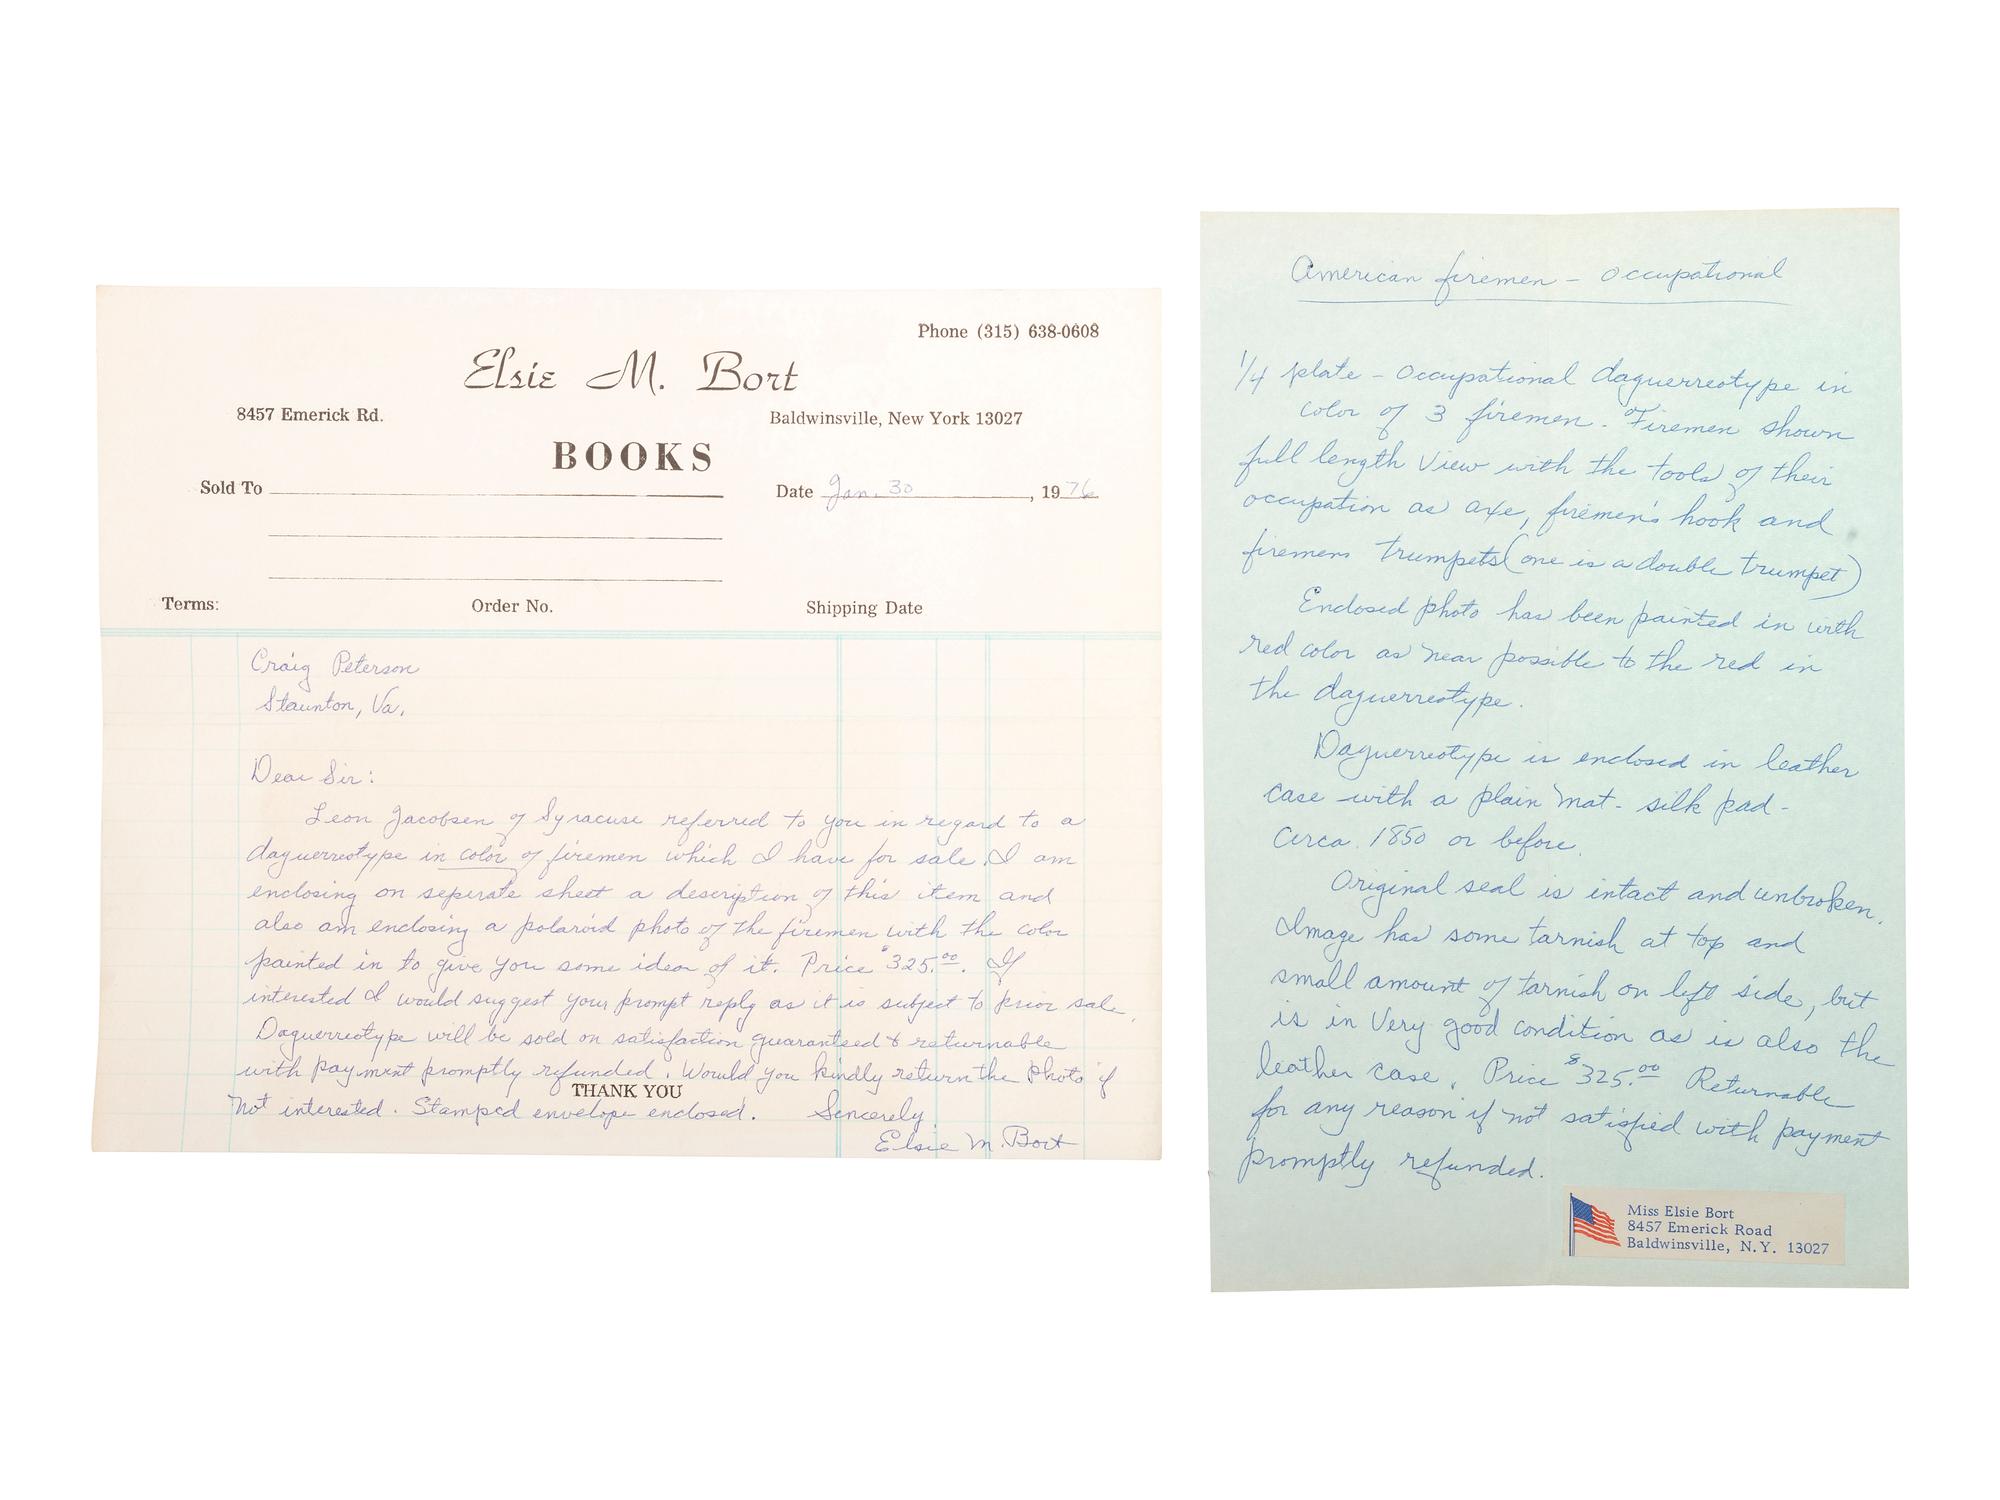 Phone (315) 638-0608
Elsie M. Bort
8457 Emerick Rd.
Baldwinsville, New York 13027
BOOKS
Sold To
Date Jan. 30, 1976
Terms:
Order No.
Shipping Date
Craig Peterson
Staunton, Va.
Dear Sir:
Leon Jacobsen of Syracuse referred to you in regard to a
daguerreotype in color of firemen which I have for sale. I am
enclosing on seperate sheet a description of this item and
also am enclosing a polaroid photo of the firemen with the color
painted in to give you some idea of it. Price $325.00. If
interested I would suggest your prompt reply as it is subject to prior sale.
Daguerreotype will be sold on satisfaction guaranteed & returnable
with payment promptly refunded. Would you kindly return the photo if
THANK YOU
not interested. Stamped envelope enclosed. Sincerely
Elsie M. Bort
American firemen - Occupational
1/4 plate - Occupational daguerreotype in
color of 3 firemen. Firemen shown
full length view with the tools of their
occupation as axe, firemen's hook and
firemens trumpets (one is a double trumpet)
Enclosed photo has been painted in with
red color as near possible to the red in
the daguerreotype.
Daguerreotype is enclosed in leather
case with a plain mat - silk pad -
Circa 1850 or before.
Original seal is intact and unbroken.
Image has some tarnish at top and
small amount of tarnish on left side, but
is in very good condition as is also the
leather case. Price $325.00 Returnable
for any reason if not satisfied with payment
promptly refunded.
Miss Elsie Bort
8457 Emerick Road
Baldwinsville, N.Y. 13027